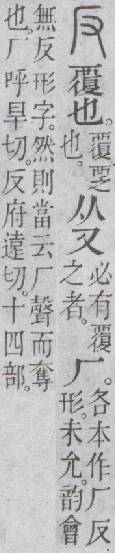 反 覆也。覆覂也。从又必有覆之者。厂。各本作厂反形。未允。韵會
無反形字。然則當云厂聲而奪
也。厂呼旱切。反府遠切。十四部。